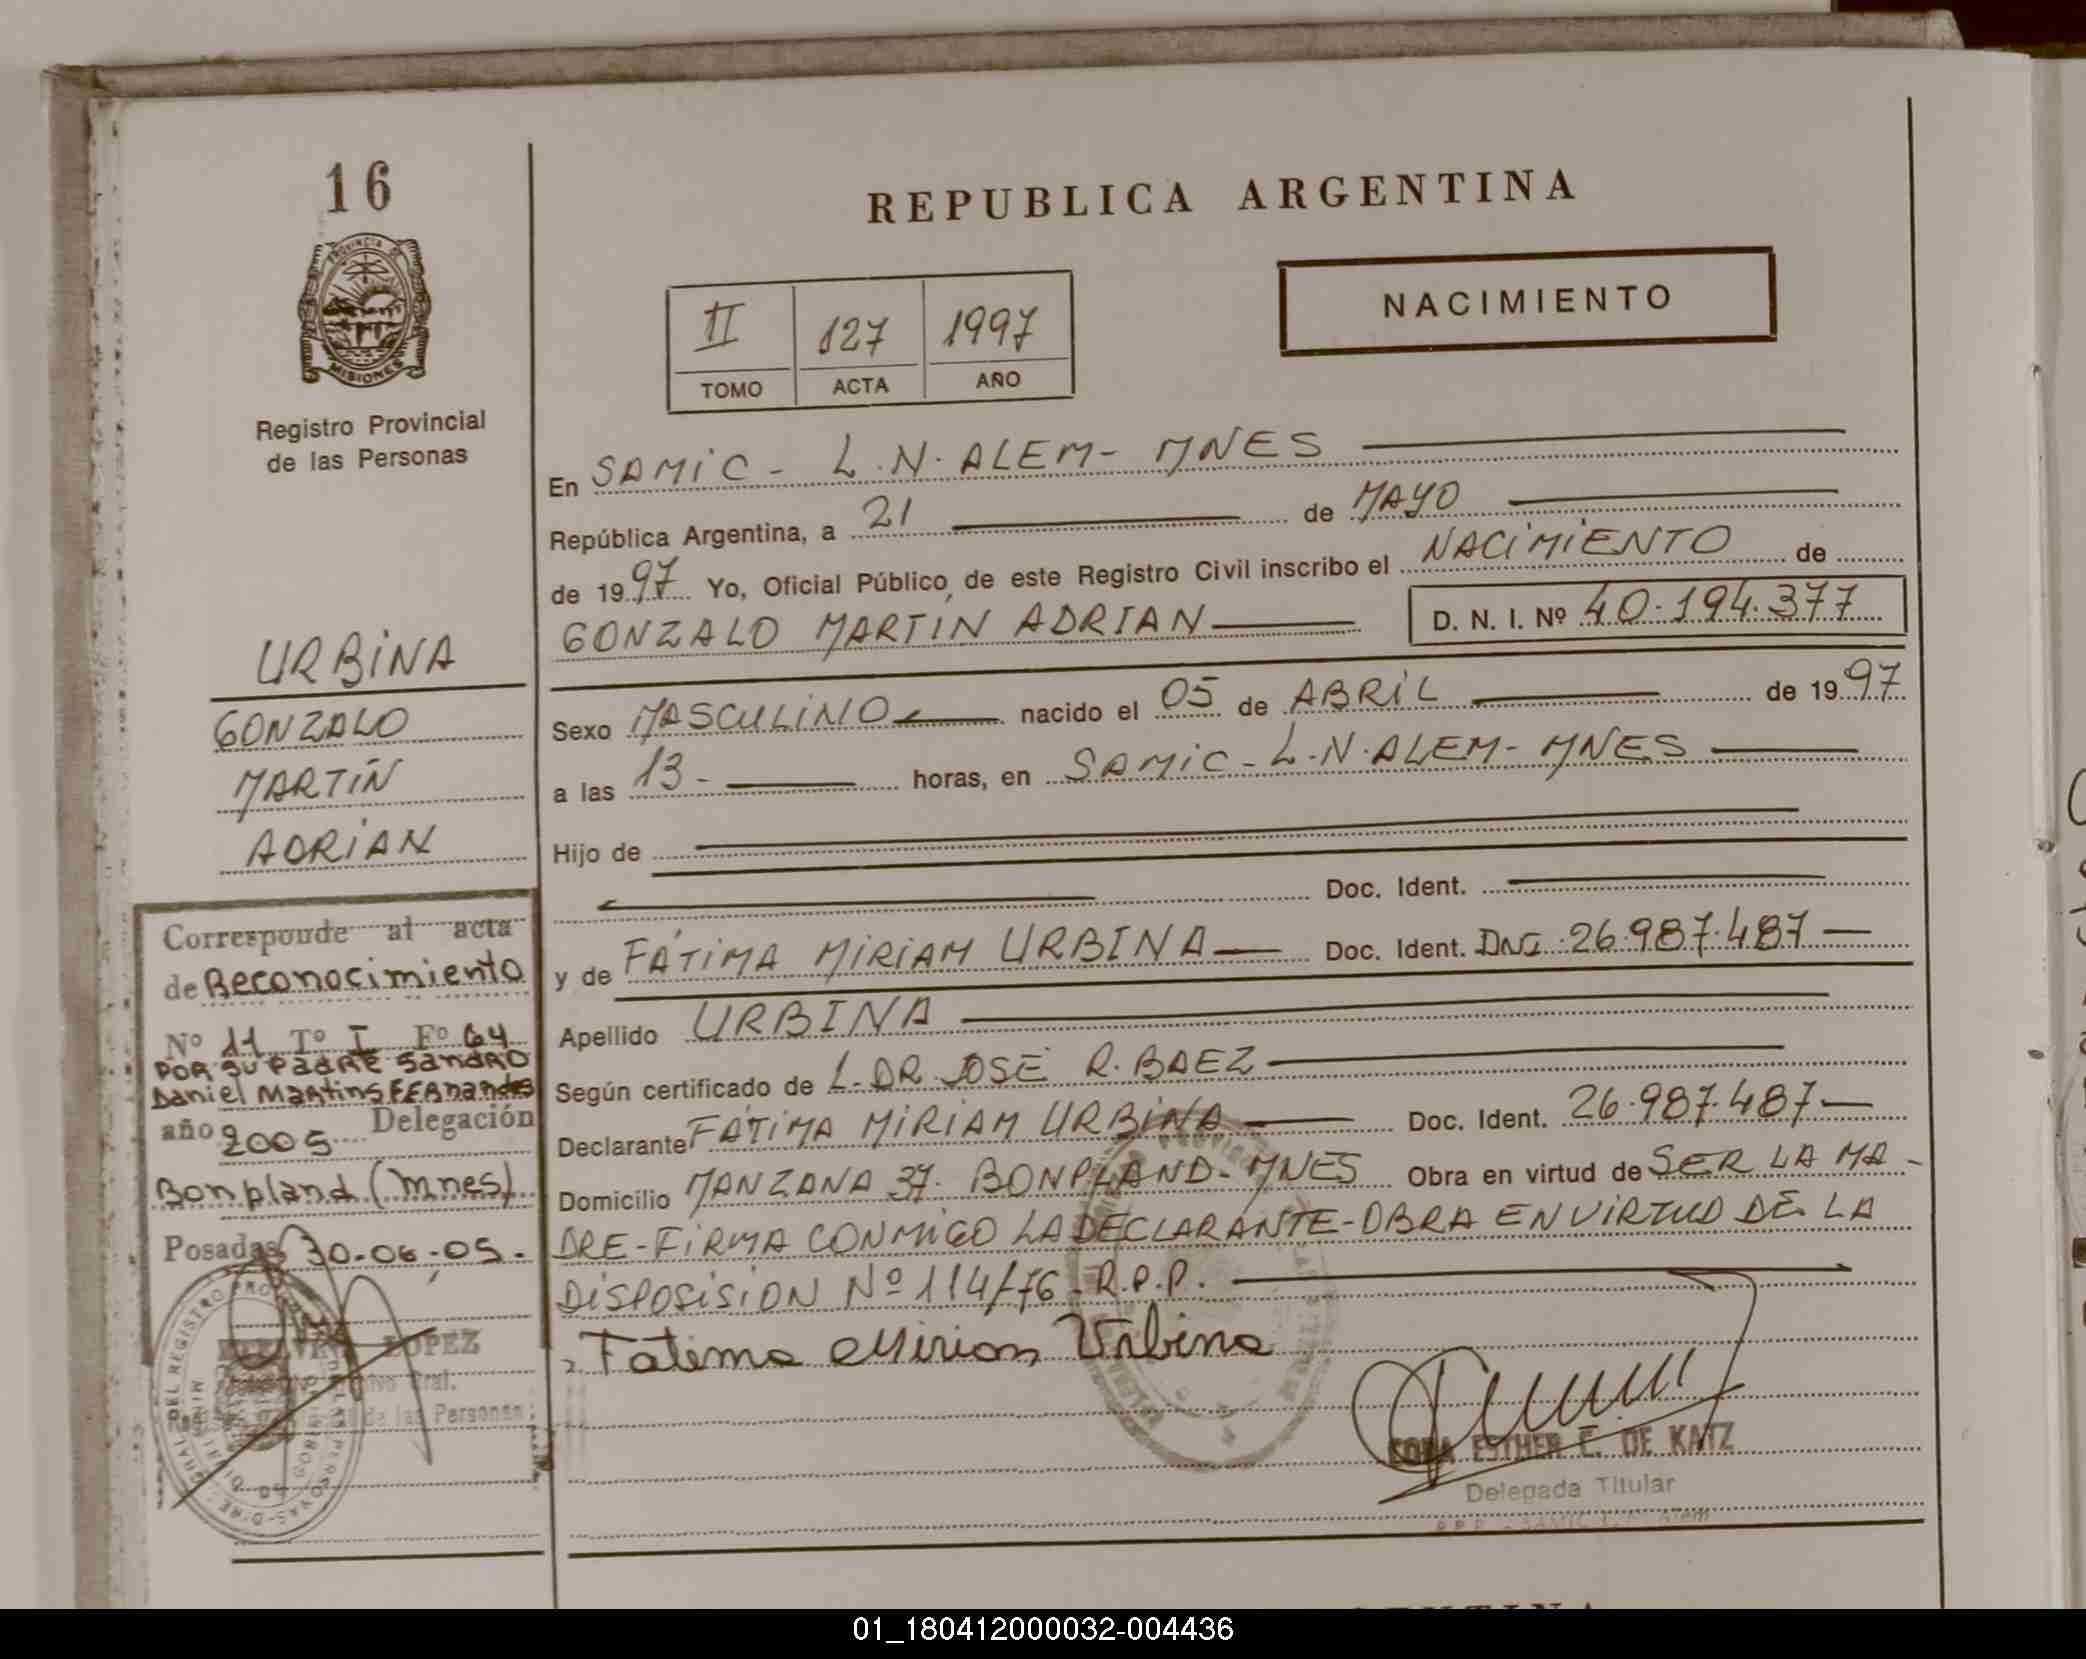 16
PROVINCIA DE
MISIONES
Registro Provincial
de las Personas
URBINA
GONZALO
MARTÍN
ADRIAN
Corresponde al acta
de Reconocimiento
Nº 11 Tº I Fº 64
POR SU PADRE SANDRO
Daniel Martins FERnandes
año 2005 Delegación
Bonpland (mnes)
Posadas 30-06-05.
LOPEZ
de las Personas
REPUBLICA ARGENTINA
NACIMIENTO
II 127 1997
TOMO ACTA AÑO
En SAMIC - L.N. ALEM - MNES
República Argentina, a 21 de MAYO
de 1997 Yo, Oficial Público, de este Registro Civil inscribo el NACIMIENTO de
GONZALO MARTÍN ADRIAN D. N. I. Nº 40.194.377
Sexo MASCULINO nacido el 05 de ABRIL de 1997
a las 13- horas, en SAMIC - L.N. ALEM - MNES
Hijo de
Doc. Ident.
y de FÁTIMA MIRIAM URBINA Doc. Ident. DNI 26.987.487
Apellido URBINA
Según certificado de L. DR. JOSÉ R. BAEZ
Declarante FÁTIMA MIRIAM URBINA Doc. Ident. 26.987.487
Domicilio MANZANA 37. BONPLAND - MNES Obra en virtud de SER LA MA-
DRE - FIRMA CONMIGO LA DECLARANTE - OBRA EN VIRTUD DE LA
DISPOSISION Nº 114/76 - R.P.P.
Fatima Miriam Urbina
ESTHER E. DE KATZ
Delegada Titular
01_180412000032-004436